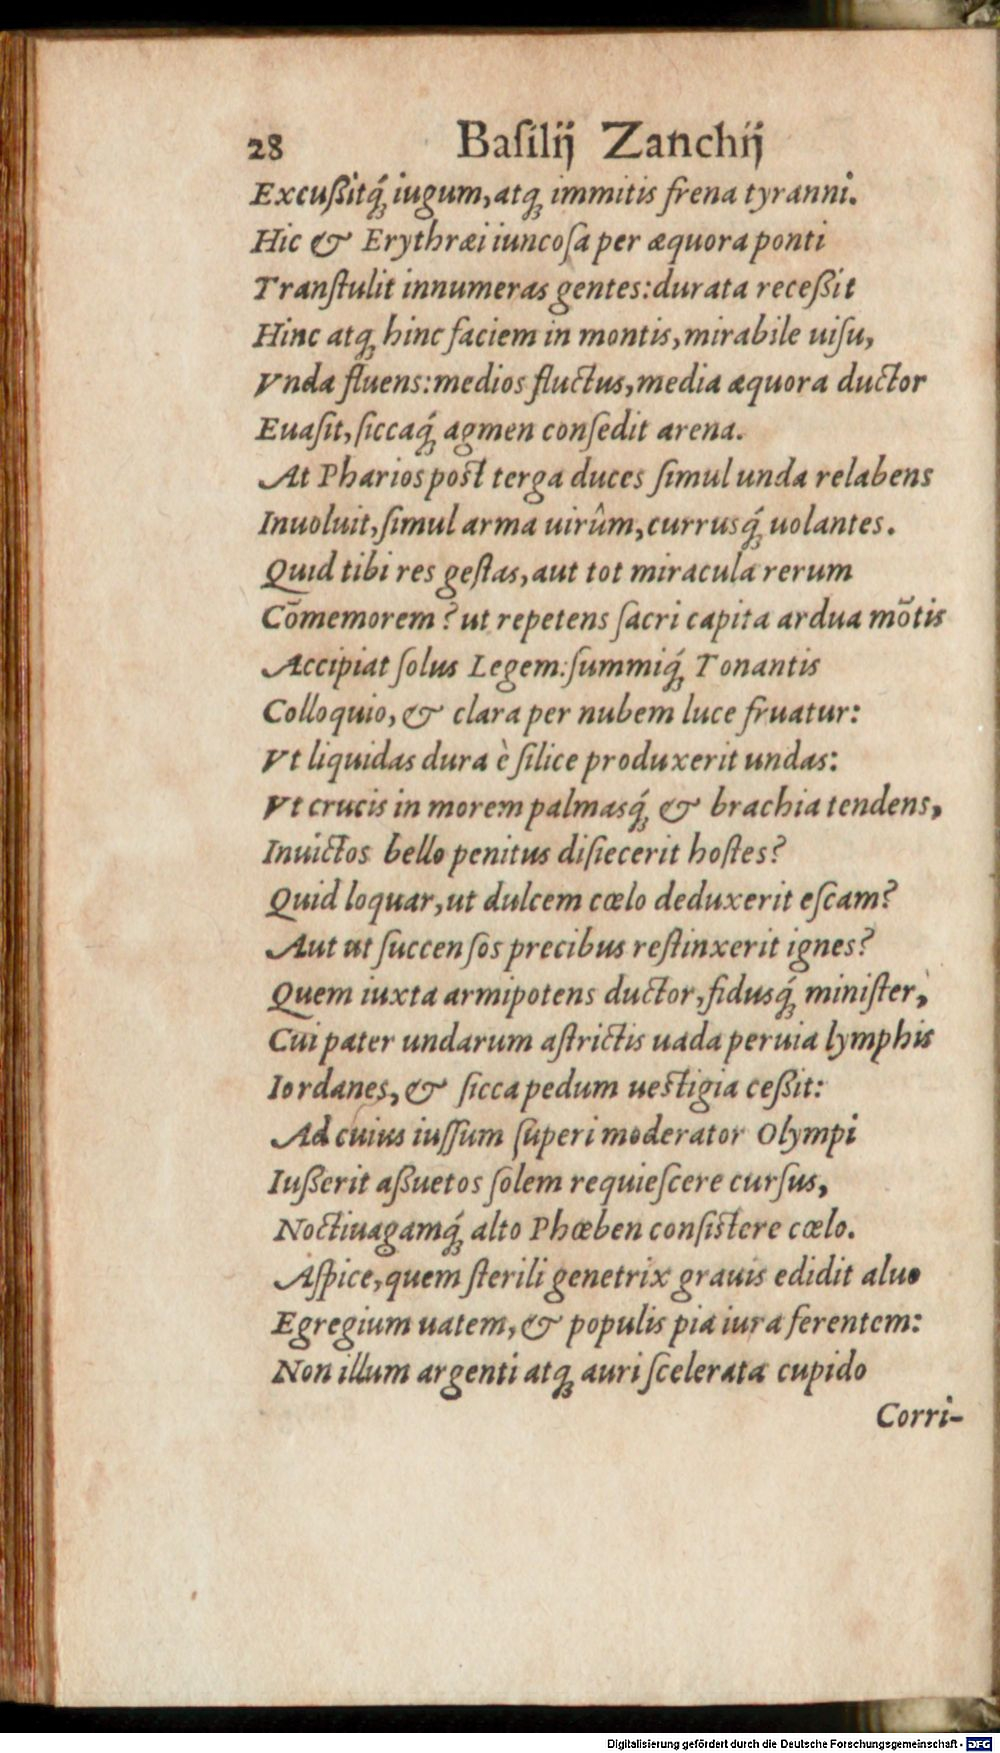 28 Baſilij Zanchij
Excußitq́ꝫ iugum, atqꝫ immitis frena tyranni.
Hic & Erythræi iuncoſa per æquora ponti
Tranſtulit innumeras gentes: durata receßit
Hinc atqꝫ hinc faciem in montis, mirabile uiſu,
Vnda fluens: medios fluctus, media æquora ductor
Euaſit, ſiccaq́ꝫ agmen conſedit arena.
At Pharios post terga duces ſimul unda relabens
Inuoluit, ſimul arma uirûm, currusq́ꝫ uolantes.
Quid tibi res geſtas, aut tot miracula rerum
Cōmemorem? ut repetens ſacri capita ardua mōtis
Accipiat ſolus Legem: ſummiq́ꝫ Tonantis
Colloquio, & clara per nubem luce fruatur:
Vt liquidas dura è ſilice produxerit undas:
Vt crucis in morem palmasq́ꝫ & brachia tendens,
Inuictos bello penitus diſiecerit hoſtes?
Quid loquar, ut dulcem cœlo deduxerit eſcam?
Aut ut ſuccenſos precibus reſtinxerit ignes?
Quem iuxta armipotens ductor, fidusq́ꝫ miniſter,
Cui pater undarum aſtrictis uada peruia lymphis
Iordanes, & ſicca pedum uestigia ceßit:
Ad cuius iuſſum ſuperi moderator Olympi
Iußerit aßuetos ſolem requieſcere curſus,
Noctiuagamq́ꝫ alto Phœben conſistere cœlo.
Aſpice, quem ſterili genetrix grauis edidit aluo
Egregium uatem, & populis pia iura ferentem:
Non illum argenti atqꝫ auri ſcelerata cupido
Corri-
Digitalisierung gefördert durch die Deutsche Forschungsgemeinschaft - DFG